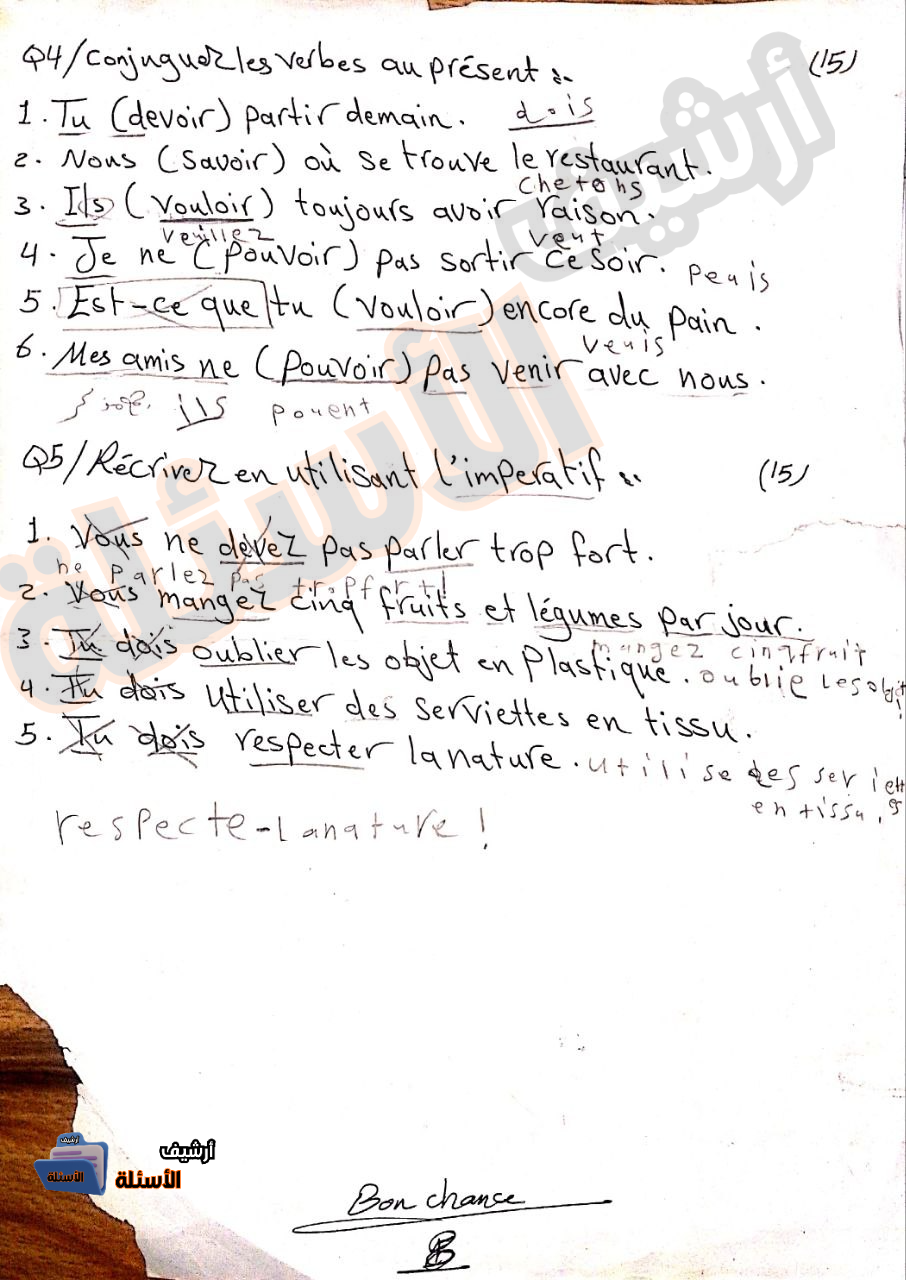 Q4/Conjuguez les verbes au présent :. (15)
1. Tu (devoir) partir demain. dois
2. Nous (savoir) où se trouve le restaurant.
3. Ils (vouloir) toujours avoir raison.
veillez veut
4. Je ne (pouvoir) pas sortir ce soir. peuis
5. Est-ce que tu (vouloir) encore du pain.
veuis
6. Mes amis ne (pouvoir) pas venir avec nous.
ils pouent
Q5/Récrivez en utilisant l'imperatif :. (15)
1. Vous ne devez pas parler trop fort.
ne parlez pas tropfort!
2. Vous mangez cinq fruits et légumes par jour.
mangez cinqfruit
3. Tu dois oublier les objet en plastique. oublie les objet!
4. Tu dois utiliser des serviettes en tissu.
5. Tu dois respecter la nature. utilise des serviett
en tissu.
respecte-lanature!
أرشيف
الأسئلة
أرشيف
الأسئلة
Bon chance
أرشيف الأسئلة